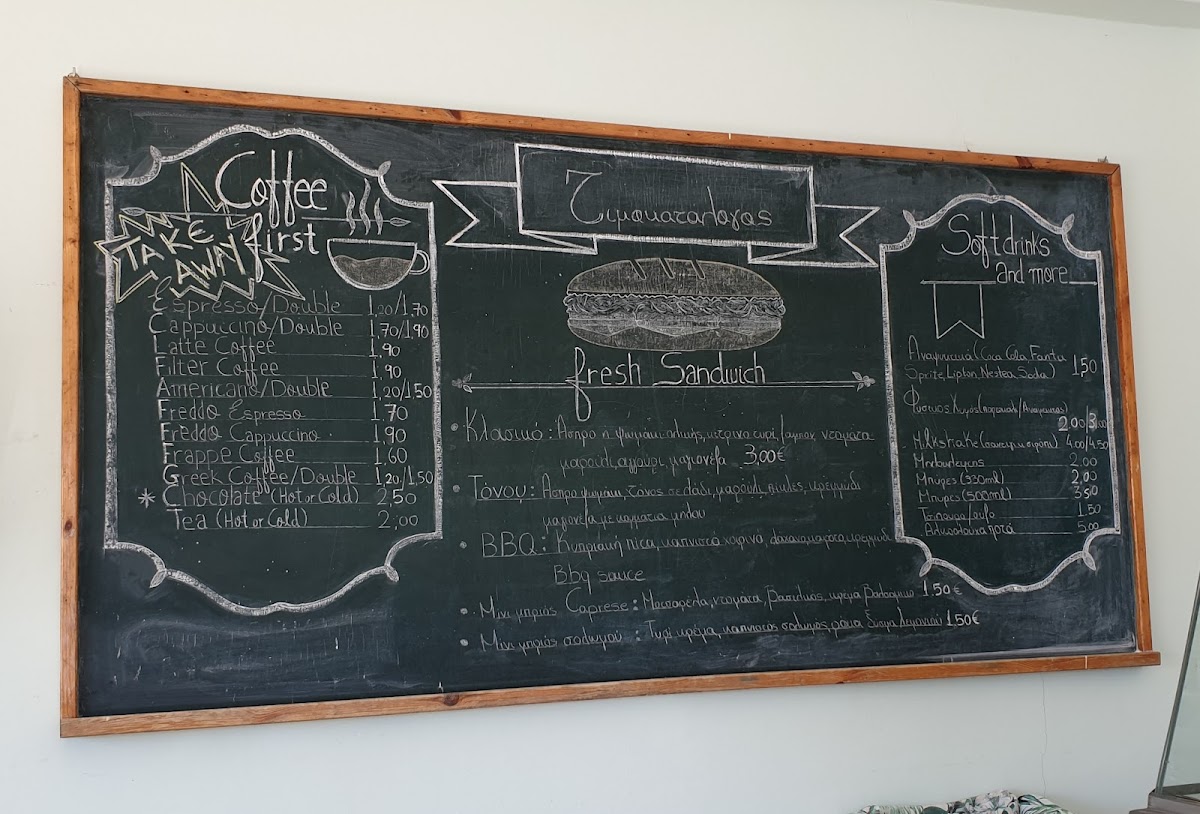 Coffee
first
TAKE
AWAY
Espresso/Double 1,20/1,70
Cappuccino/Double 1,70/1,90
Latte Coffee 1,90
Filter Coffee 1,90
Americano/Double 1,20/1,50
Freddo Espresso 1,70
Freddo Cappuccino 1,90
Frappe Coffee 1,60
Greek Coffee/Double 1,20/1,50
* Chocolate (Hot or Cold) 2,50
Tea (Hot or Cold) 2,00
Τιμοκαταλογος
fresh Sandwich
• Κλασικό: Άσπρο ή ψωμάκι ολικής, κίτρινο τυρί, ντομάτα
μαρούλι, αγγούρι, μαγιονέζα 3,00€
• Τόνου: Άσπρο ψωμάκι, τόνος σε λάδι, μαρούλι, πίκλες, κρεμμύδι
μαγιονέζα με κομμάτια μήλου
• BBQ: Κυπριακή πίτα, καπνιστά χοιρινό, κρεμμύδι
Bbq sauce
• Μίνι μπριός Caprese: Μοτσαρέλα, ντομάτα, βασιλικός, κρέμα βαλσαμικο 1,50€
• Μίνι μπριός σολωμού: Τυρί κρέμα, καπνιστός σολωμός, ρόκα 1,50€
Soft drinks
and more
Αναψυκτικά (Coca Cola, Fanta
Sprite, Lipton, Nestea Soda) 1,50
Φυσικός Χυμός (πορτοκαλι/Ανάμεικτος)
2,00/3,00
Milkshake 4,00/4,50
2,00
Μπύρες (330ml) 2,00
Μπύρες (500ml) 3,50
Τσίπουρο/ούζο 1,50
Αλκοολούχα ποτά 5,00